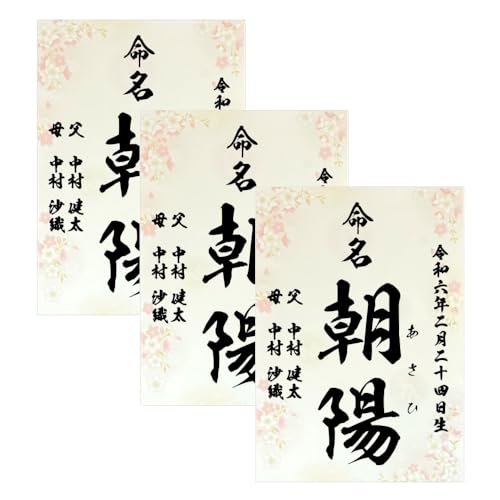 命名
令和
朝
陽
父 中村 健太
母 中村 沙織
命名
令
朝
陽
父 中村 健太
母 中村 沙織
命名
令和六年二月二十四日生
朝陽
あさひ
父 中村 健太
母 中村 沙織